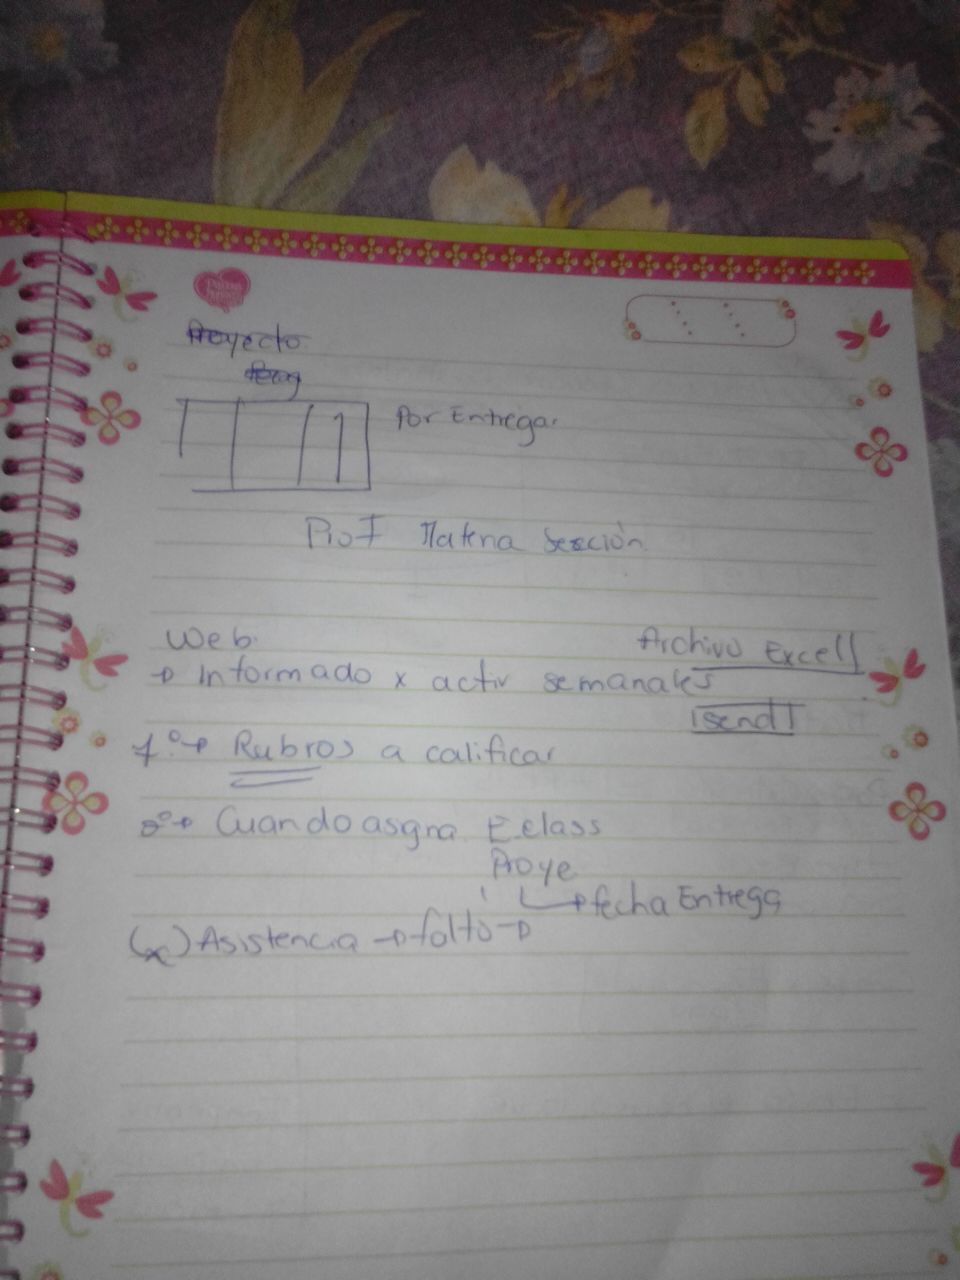 Proyecto
Por Entregar
Prof Materia sección
Web.
Archivo Excell
→ Informado x activ semanales
send
1º→ Rubros a calificar
2º→ Cuando asgna E.class
Proye
↳ fecha Entrega
(x) Asistencia → falto →